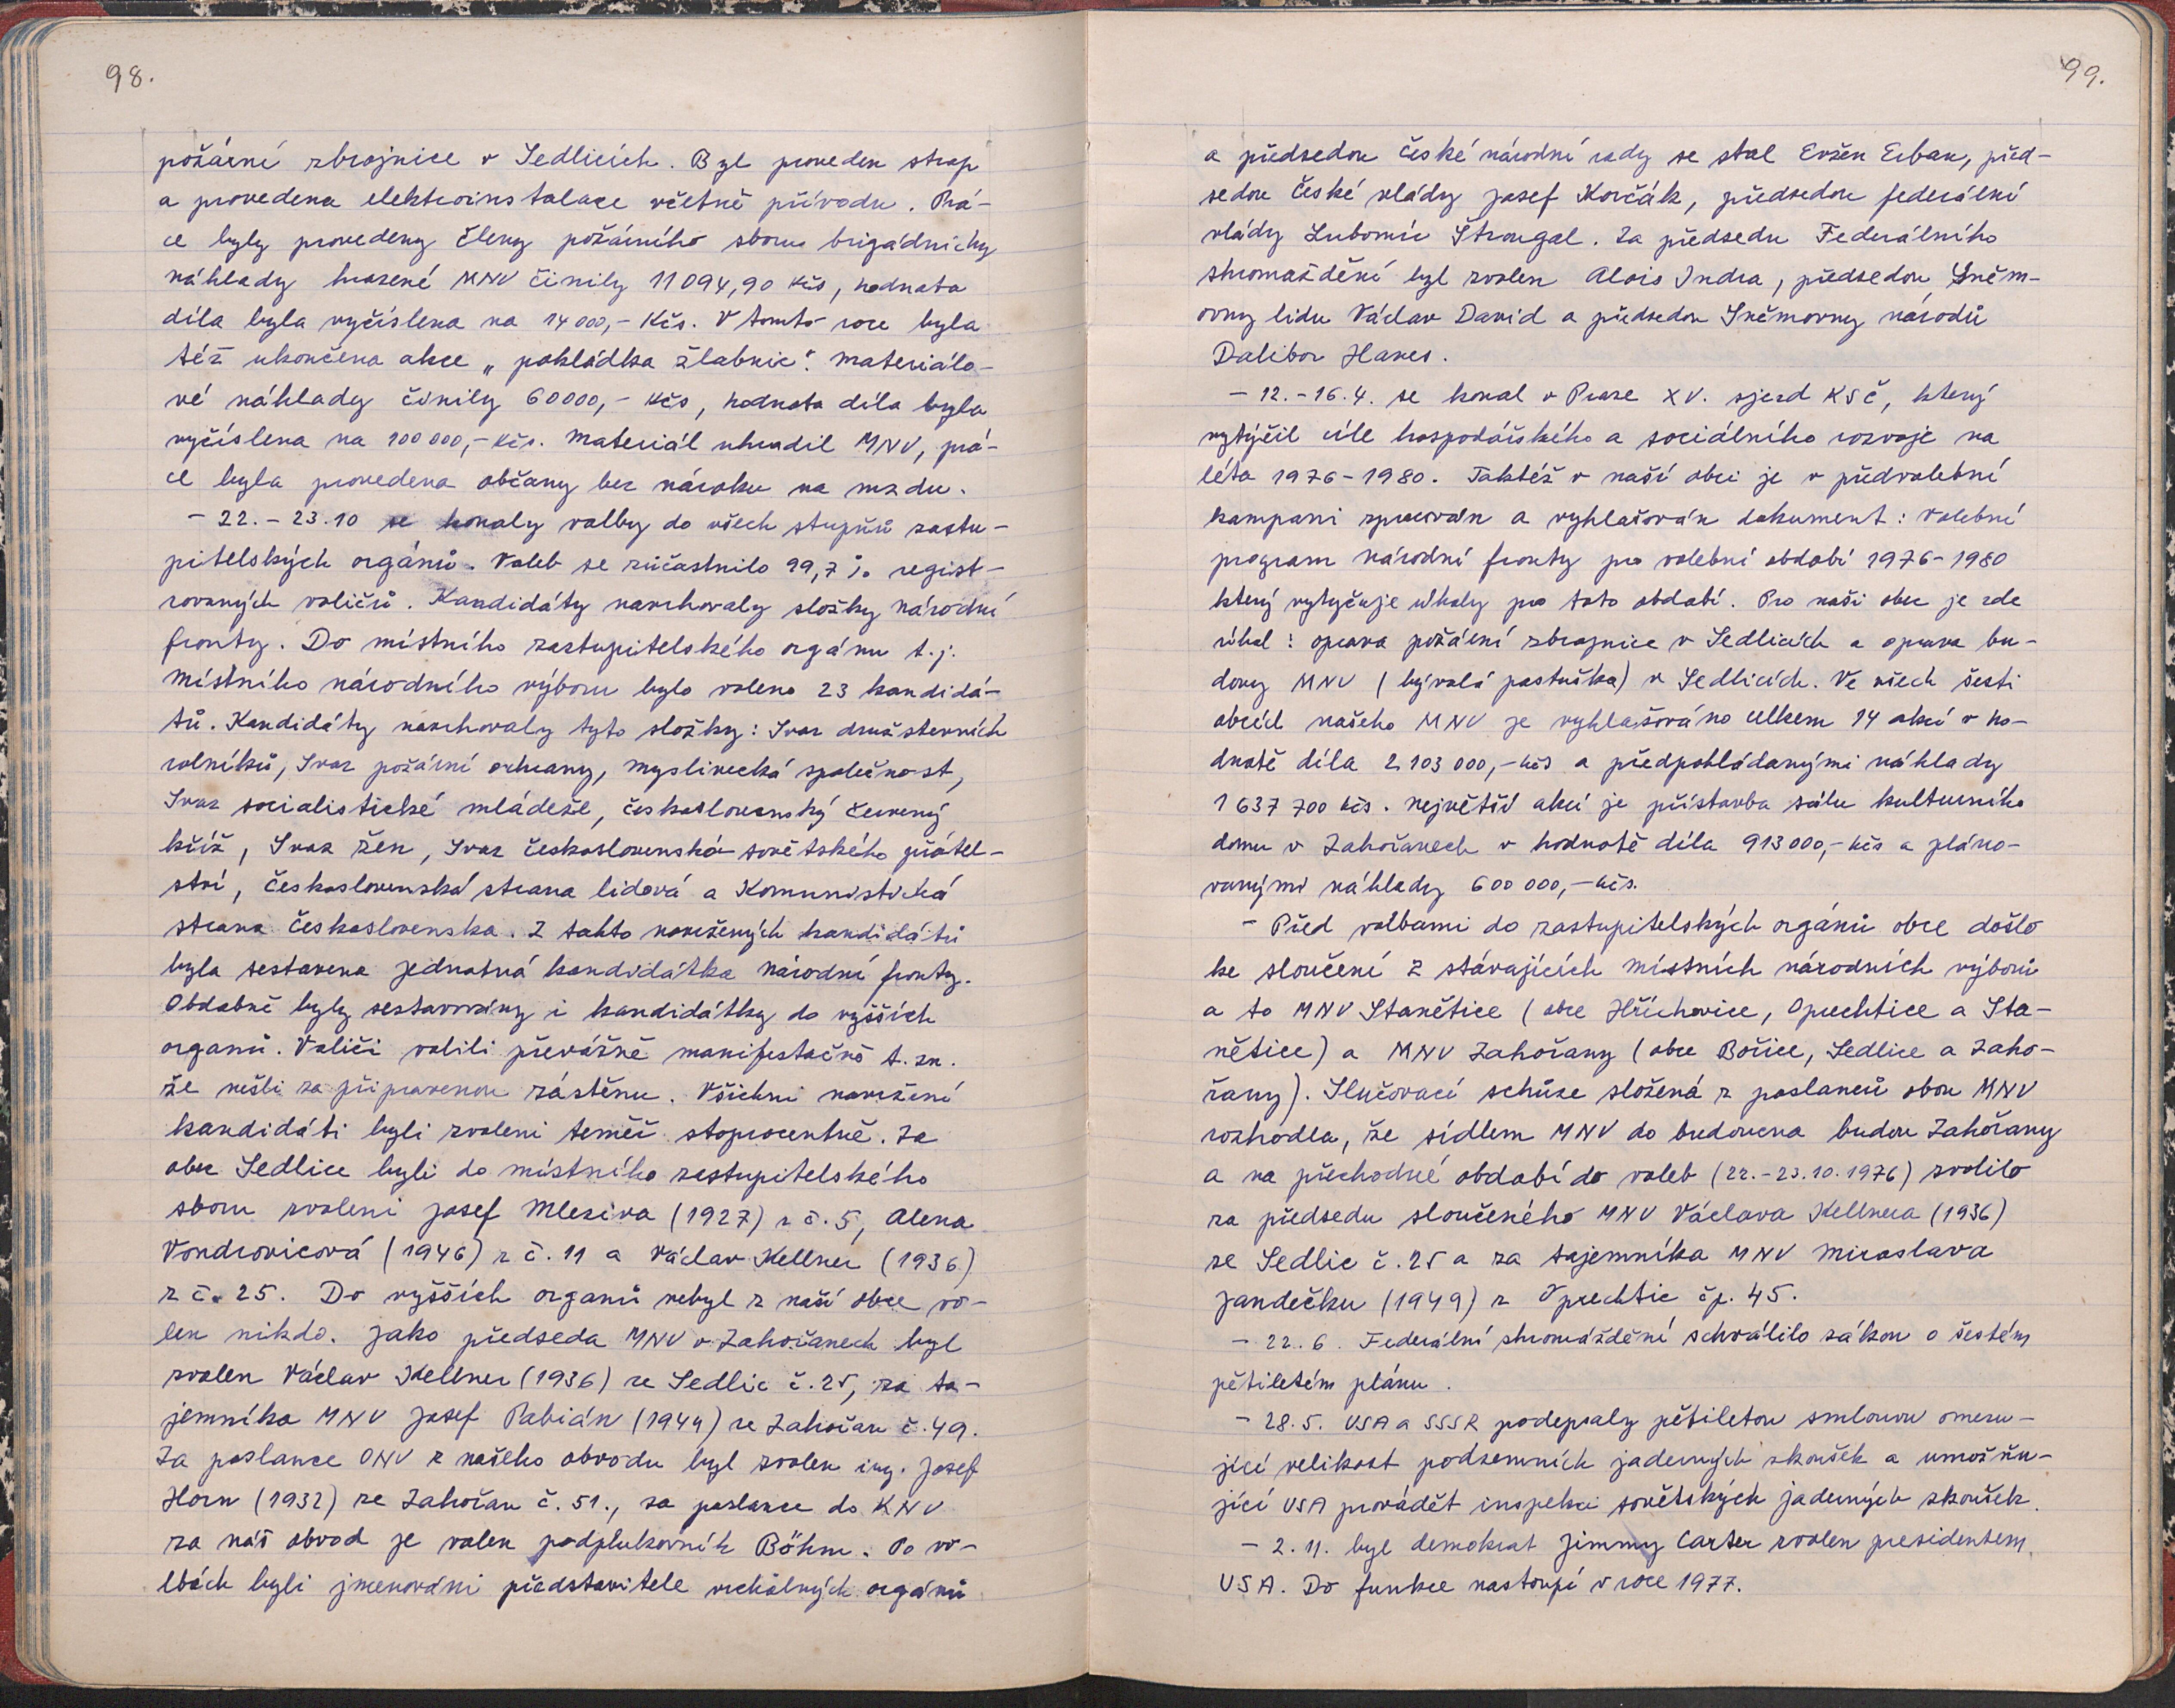 98.
požární zbrojnice v Sedlicích. Byl proveden strop
a provedena elektroinstalace včetně přívodu. Prá-
ce byly provedeny členy požárního sboru brigádnicky
náklady hrazené MNV činily 11094,90 Kčs, hodnota
díla byla vyčíslena na 14000,- Kčs. V tomto roce byla
též ukončena akce „pokládka žlabnic". Materiálo-
vé náklady činily 60000,- Kčs, hodnota díla byla
vyčíslena na 100000,- Kčs. Materiál uhradil MNV, prá-
ce byla provedena občany bez nároku na mzdu.
- 22.-23.10 se konaly volby do všech stupňů zastu-
pitelských orgánů. Voleb se zúčastnilo 99,7 % regist-
rovaných voličů. Kandidáty navrhovaly složky národní
fronty. Do místního zastupitelského orgánu t.j.
Místního národního výboru bylo voleno 23 kandidá-
tů. Kandidáty navrhovaly tyto složky: Svaz družstevních
rolníků, Svaz požární ochrany, Myslivecká společnost,
Svaz socialistické mládeže, československý červený
kříž, Svaz žen, Svaz československo sovětského přátel-
ství, československá strana lidová a Komunistická
strana Československa. Z takto navržených kandidátů
byla sestavena jednotná kandidátka národní fronty.
Obdobně byly sestavovány i kandidátky do vyšších
organů. Voliči volili převážně manifestačně t.zn.
že nešli za připravenou zástěnu. Všichni navržení
kandidáti byli zvoleni teměř stoprocentně. Za
obec Sedlice byli do místního zastupitelského
sboru zvoleni Josef Mleziva (1927) z č.5, Alena
Vondrovicová (1946) z č.11 a Václav Kellner (1936)
z č.25. Do vyšších organů nebyl z naší obce vo-
len nikdo. Jako předseda MNV v Zahořanech byl
zvolen Václav Kellner (1936) ze Sedlic č.25, za ta-
jemníka MNV Josef Pabián (1944) ze Zahořan č.49.
Za poslance ONV z našeho obvodu byl zvolen ing. Josef
Horn (1932) ze Zahořan č.51., za poslance do KNV
za náš obvod je volen podplukovník Böhm. Po vo-
lbách byli jmenováni představitele vrcholných orgánů
99.
a předsedou České národní rady se stal Evžen Erban, před-
sedou České vlády Josef Korčák, předsedou federální
vlády Lubomír Štrougal. Za předsedu Federálního
shromaždění byl zvolen Alois Indra, předsedou Sněm-
ovny lidu Václav David a předsedou Sněmovny národů
Dalibor Hanes.
- 12.-16.4. se konal v Praze XV. sjezd KSČ, který
vytýčil cíle hospodářského a sociálního rozvoje na
léta 1976-1980. Taktéž v naší obci je v předvolební
kampani zpracován a vyhlašován dokument: Volební
program Národní fronty pro volební období 1976-1980
který vytyčuje úkoly pro toto období. Pro naši obec je zde
úkol: oprava požární zbrojnice v Sedlicích a oprava bu-
dovy MNV (bývalá pastuška) v Sedlicích. Ve všech šesti
obcích našeho MNV je vyhlašováno celkem 14 akcí v ho-
dnotě díla 2103000,- Kčs a předpokládanými náklady
1637700 Kčs. Největší akcí je přístavba sálu kulturního
domu v Zahořanech v hodnotě díla 913000,- Kčs a pláno-
vanými náklady 600000,- Kčs.
- Před volbami do zastupitelských orgánů obce došlo
ke sloučení 2 stávajících místních národních výborů
a to MNV Stanětice (obce Hříchovice, Oprechtice a Sta-
nětice) a MNV Zahořany (obce Bořice, Sedlice a Zaho-
řany). Slučovací schůze složená z poslanců obou MNV
rozhodla, že sídlem MNV do budoucna budou Zahořany
a na přechodné období do voleb (22.-23.10.1976) zvolilo
za předsedu sloučeného MNV Václava Kellnera (1936)
ze Sedlic č.25 a za tajemníka MNV Miroslava
Jandečku (1949) z Oprechtic čp. 45.
- 22.6. Federální shromáždění schválilo zákon o šestém
pětiletém plánu.
- 28.5. USA a SSSR podepsaly pětiletou smlouvu omezu-
jící velikost podzemních jaderných zkoušek a umožňu-
jící USA provádět inspekci sovětských jaderných zkoušek.
- 2.11. byl demokrat Jimmy Carter zvolen presidentem
USA. Do funkce nastoupí v roce 1977.